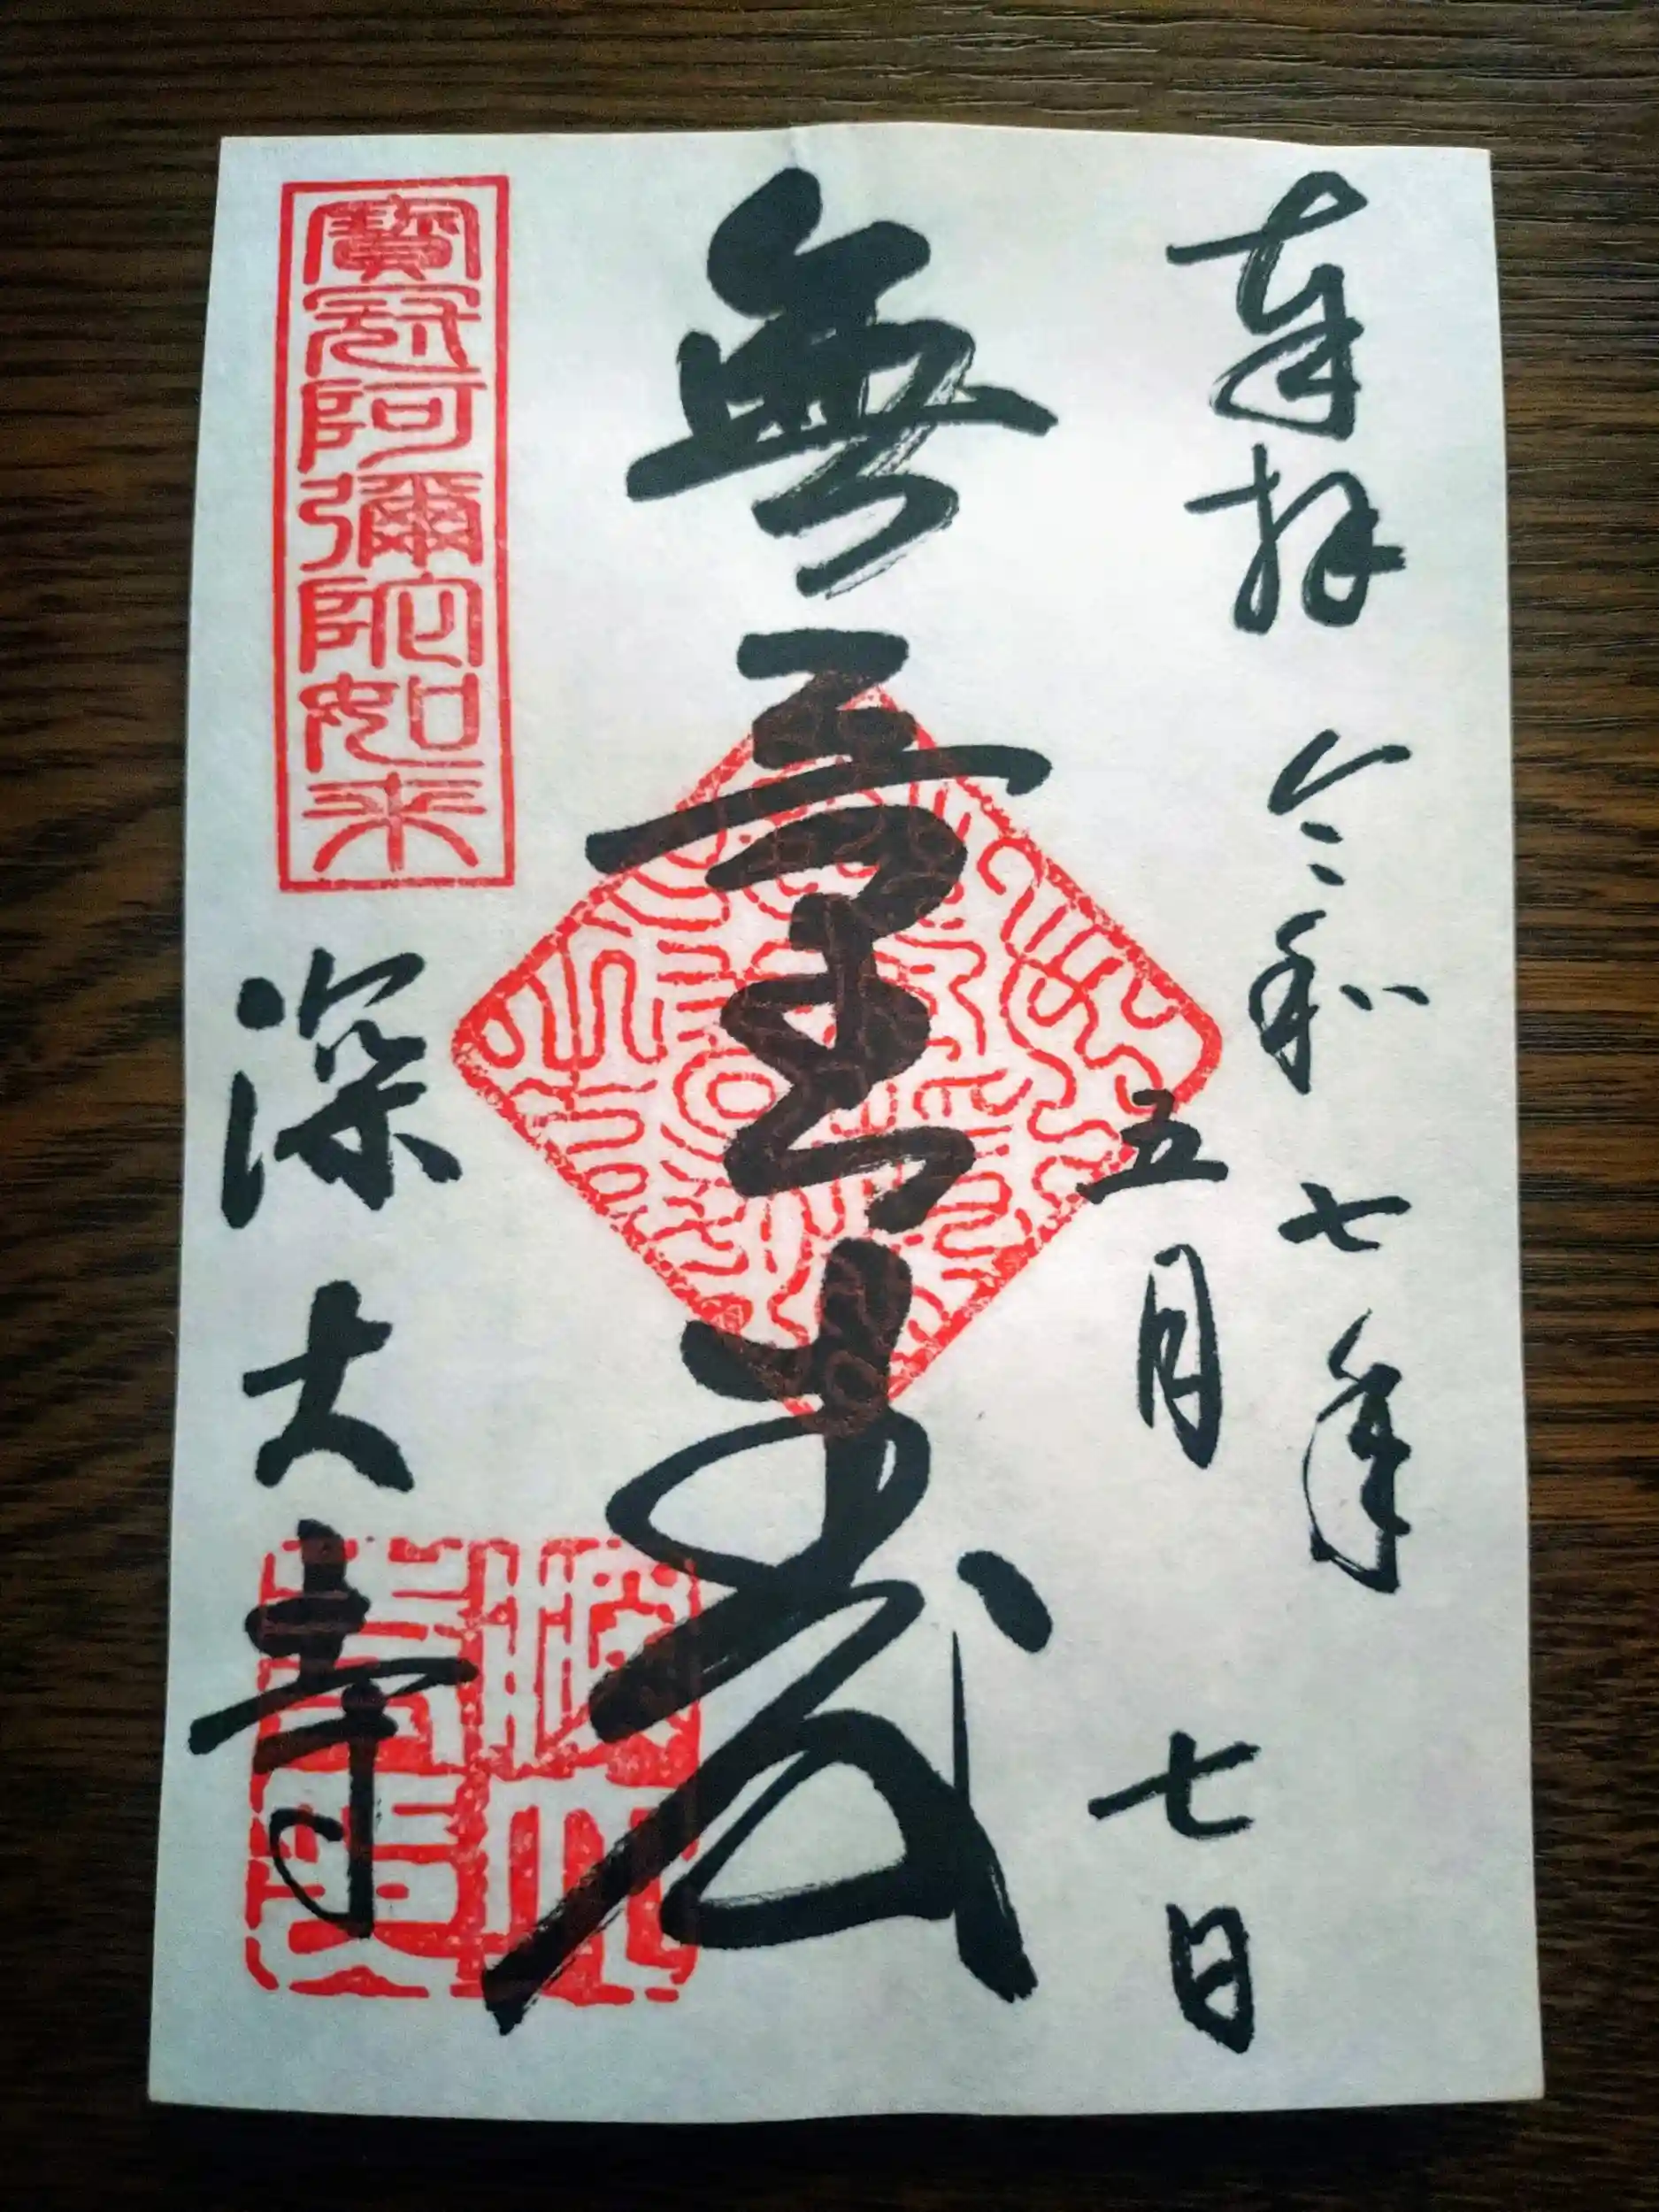 奉拝
令和七年
五月七日
無量寿
寳冠阿彌陀如来
深大寺